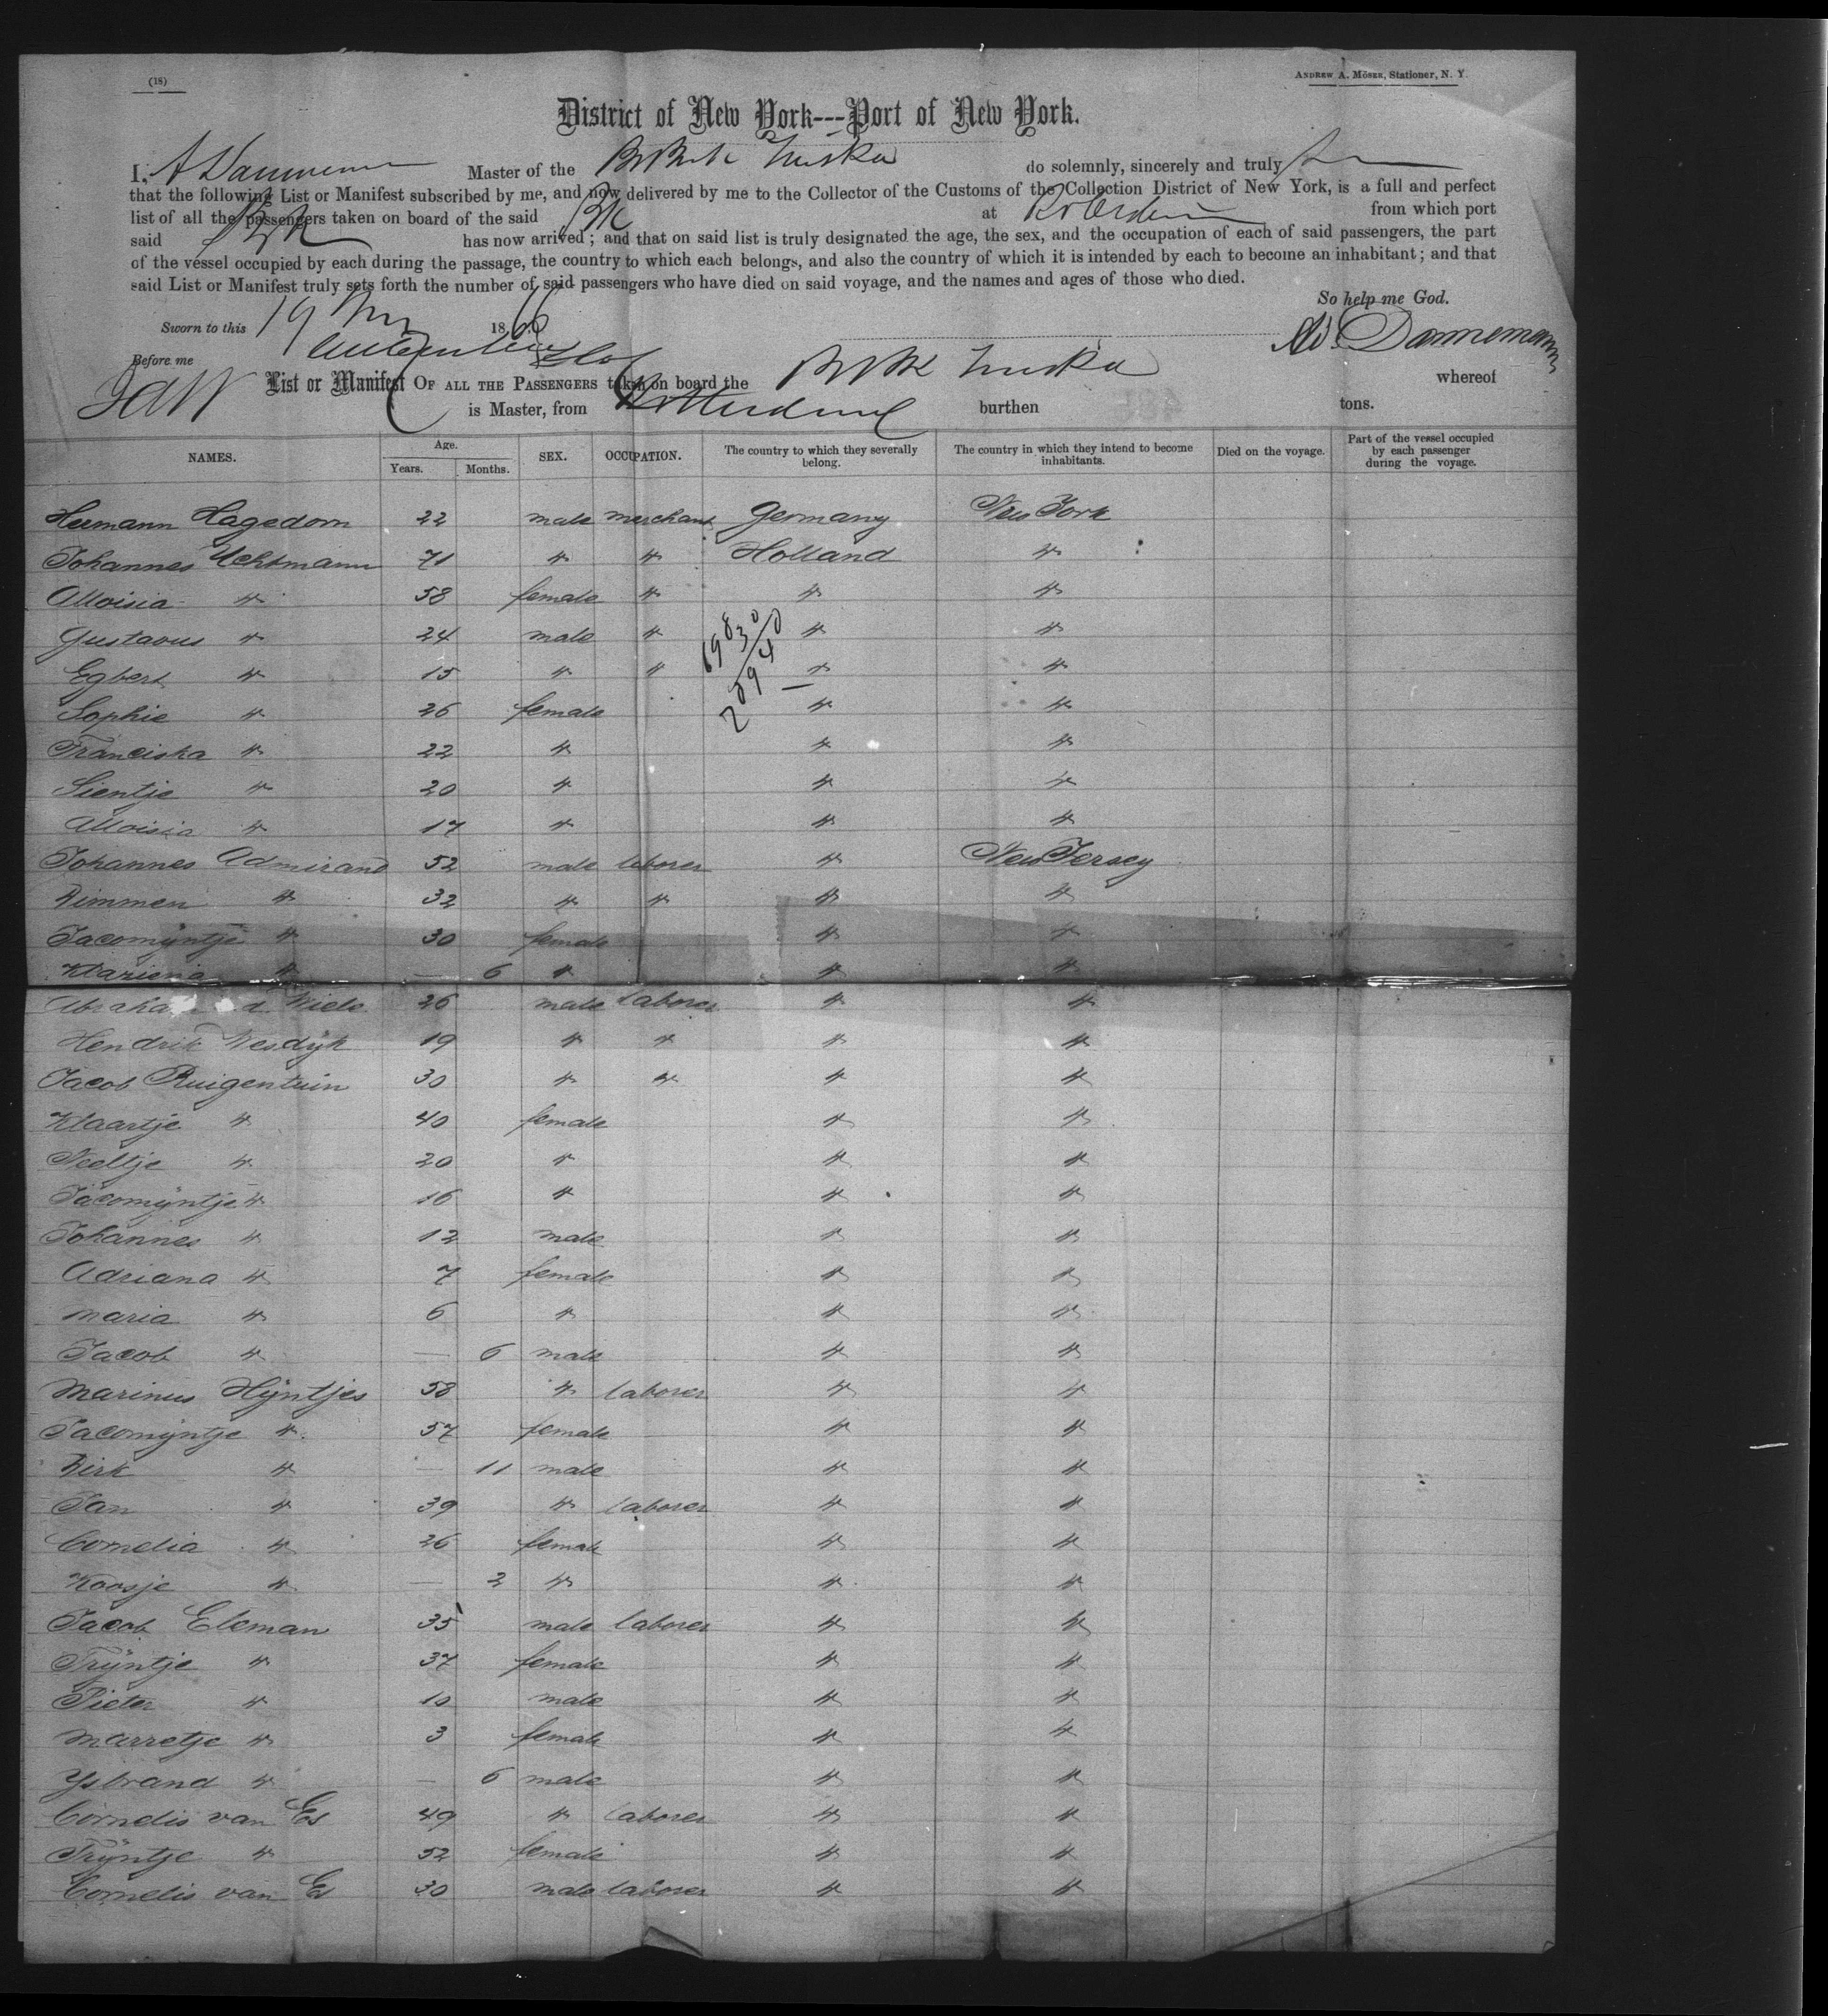 (18)
ANDREW A. MÖSER, Stationer, N. Y.
District of New York---Port of New York.
I, A Dannemann Master of the Br Bark do solemnly, sincerely and truly
that the following List or Manifest subscribed by me, and now delivered by me to the Collector of the Customs of the Collection District of New York, is a full and perfect
list of all the passengers taken on board of the said Bk at Rotterdam from which port
said Bk has now arrived; and that on said list is truly designated the age, the sex, and the occupation of each of said passengers, the part
of the vessel occupied by each during the passage, the country to which each belongs, and also the country of which it is intended by each to become an inhabitant; and that
said List or Manifest truly sets forth the number of said passengers who have died on said voyage, and the names and ages of those who died.
So help me God.
Sworn to this 19 1866
Ad. Dannemann
Before me
List or Manifest OF ALL THE PASSENGERS taken on board the Br Bk whereof
is Master, from Rotterdam burthen tons.
NAMES. Age. Years. Months. SEX. OCCUPATION. The country to which they severally belong. The country in which they intend to become inhabitants. Died on the voyage. Part of the vessel occupied by each passenger during the voyage.
Hermann Hagedorn 22 male merchant Germany New York
Johannes Uchtmann 71 " " Holland "
Alloisia " 58 female " " "
Gustavus " 24 male " " "
Egbert " 15 " " " "
Sophie " 26 female " "
Franciska " 22 " " "
Sientje " 20 " " "
Alloisia " 17 " " "
Johannes Admirand 52 male laborer " New Jersey
Dimmen " 32 " " " "
Jacomÿntje " 30 female " "
Klariena " — 6 " " "
Abraha d. Wiele 26 male laborer " "
Hendrik Wesdÿk 19 " " " "
Jacob Ruigentuin 30 " " " "
Klaartje " 40 female " "
Neeltje " 20 " " "
Jacomÿntje " 16 " " "
Johannes " 12 male " "
Adriana " 7 female " "
Maria " 6 " " "
Jacob " — 6 male " "
Marinus Hÿntjes 58 " laborer " "
Jacomÿntje " 57 female " "
Dirk " — 11 male " "
Jan " 39 " laborer " "
Cornelia " 26 female " "
Koosje " — 2 " " "
Jacob Eleman 35 male laborer " "
Trÿntje " 37 female " "
Pieter " 10 male " "
Marretje " 3 female " "
Ysbrand " — 6 male " "
Cornelis van Es 49 " laborer " "
Trÿntje " 52 female " "
Cornelis van Es 30 male laborer " "